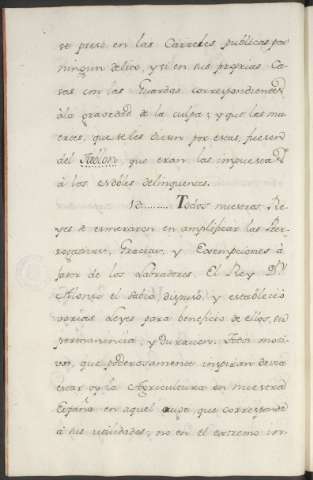 se preso en las Carzeles publicas por
ningun delito, y si en sus proprias Ca-
sas con las Guardas correspondientes
à la gravedad de la culpa; y que las mu-
ertes, que se les diesen por estas, fuesen
del que eran las impuestas
à los nobles delinquentes.
10......... Todos nuestros Re-
yes se esmeraron en amplificar las Per-
rogativas, Gracias, y Exempciones à
favor de los Labradores. El Rey Dn
Alonso el sabio dispuso, y estableció
varias Leyes para beneficio de ellos, su
permanencia, y duracion. Todos moti-
vos, que poderosamente inspiran desea
estar oy la Agricultura en nuestra
España en aquel auge, que corresponde
à sus utilidades, no en el extremo in-